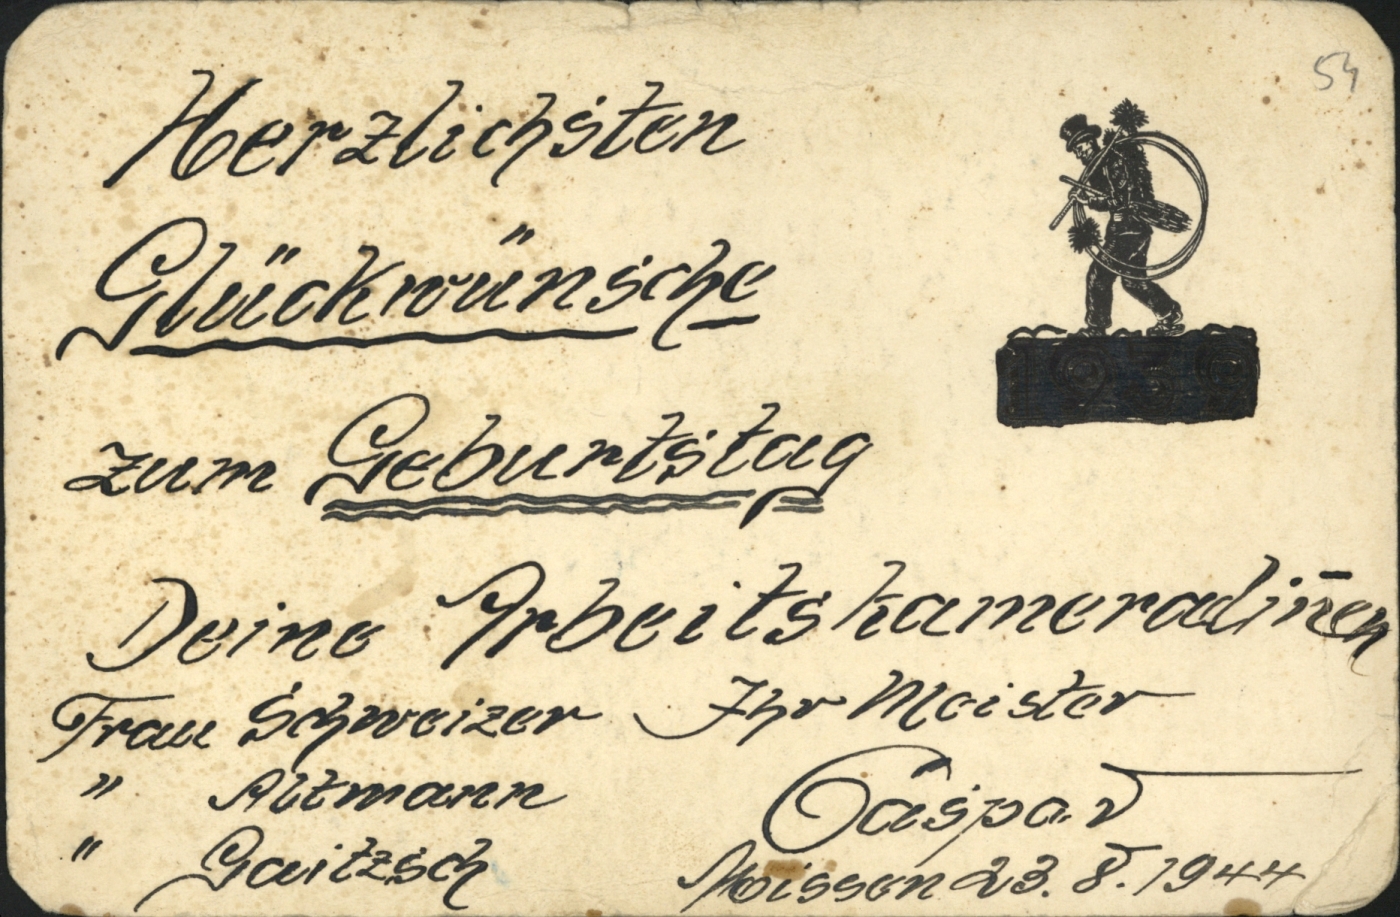 54
Herzlichsten
Glückwünsche
zum Geburtstag
Deine Arbeitskameradin̄en
Frau Schweizer
" Altmann
" Gaitzsch
Ihr Meister
Caspar
Meissen 23. 8. 1944
1939